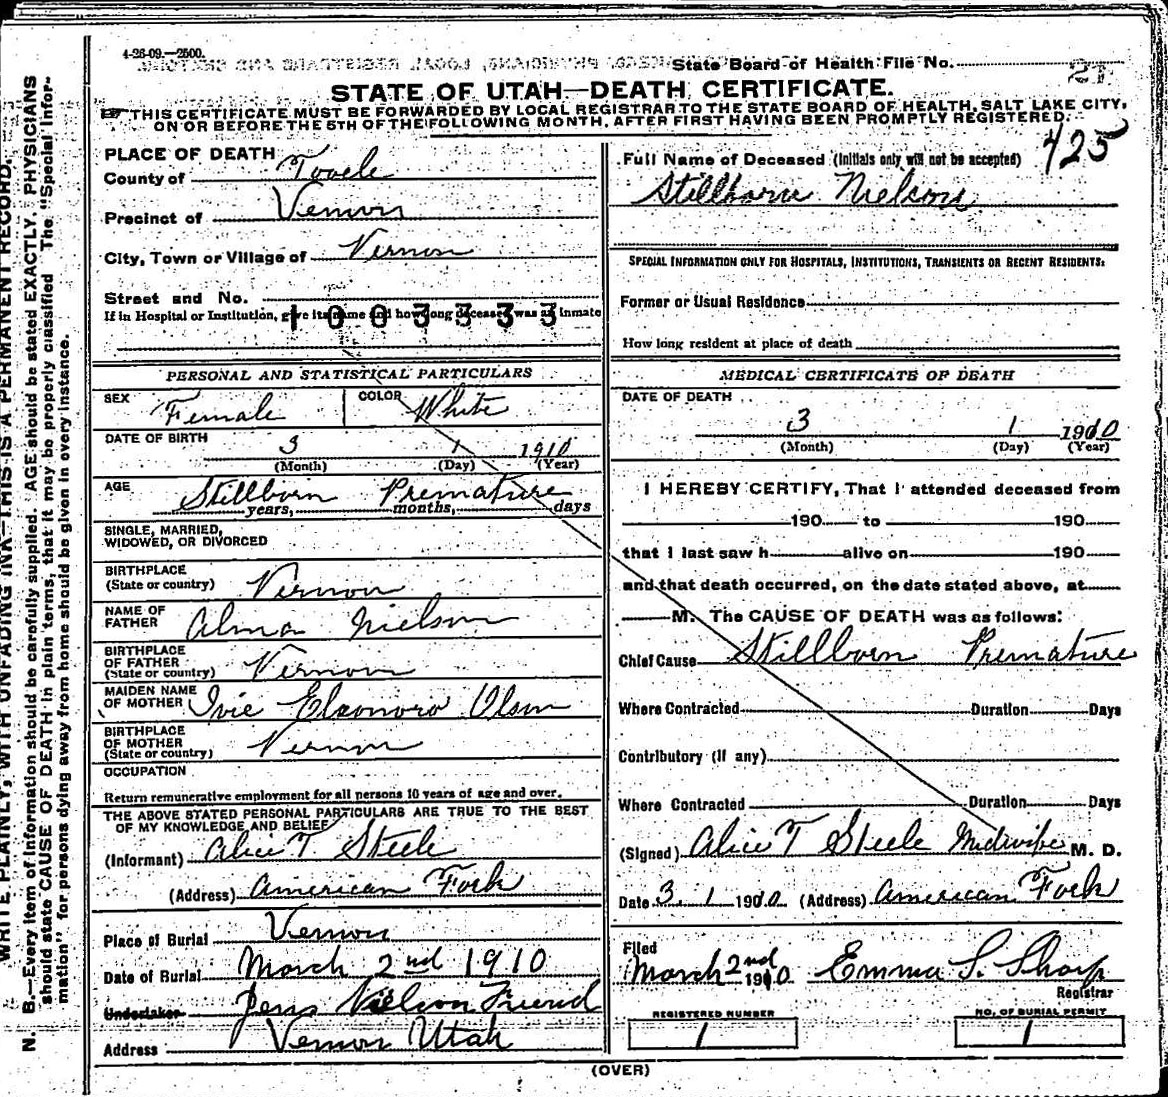 4-26-09.—2500.
State Board of Health File No. 21
STATE OF UTAH—DEATH CERTIFICATE.
THIS CERTIFICATE MUST BE FORWARDED BY LOCAL REGISTRAR TO THE STATE BOARD OF HEALTH, SALT LAKE CITY,
ON OR BEFORE THE 5TH OF THE FOLLOWING MONTH, AFTER FIRST HAVING BEEN PROMPTLY REGISTERED.
425
PLACE OF DEATH
County of Tooele
Precinct of Vernon
City, Town or Village of Vernon
Street and No.
If in Hospital or Institution, give its name and how long deceased was an inmate
1003333
PERSONAL AND STATISTICAL PARTICULARS
SEX Female COLOR White
DATE OF BIRTH 3 1 1910
(Month) (Day) (Year)
AGE Stillborn Premature
years, months, days
SINGLE, MARRIED,
WIDOWED, OR DIVORCED
BIRTHPLACE
(State or country) Vernon
NAME OF
FATHER Alma Nielson
BIRTHPLACE
OF FATHER
(State or country) Vernon
MAIDEN NAME
OF MOTHER Ivie Eleonora Olson
BIRTHPLACE
OF MOTHER
(State or country) Vernon
OCCUPATION
Return remunerative employment for all persons 10 years of age and over.
THE ABOVE STATED PERSONAL PARTICULARS ARE TRUE TO THE BEST
OF MY KNOWLEDGE AND BELIEF
(Informant) Alice T Steele
(Address) American Fork
Place of Burial Vernon
Date of Burial March 2nd 1910
Undertaker Jens Nielson Friend
Address Vernon Utah
Full Name of Deceased (Initials only will not be accepted)
Stillborn Nielson
SPECIAL INFORMATION ONLY FOR HOSPITALS, INSTITUTIONS, TRANSIENTS OR RECENT RESIDENTS:
Former or Usual Residence
How long resident at place of death
MEDICAL CERTIFICATE OF DEATH
DATE OF DEATH
3 1 1910
(Month) (Day) (Year)
I HEREBY CERTIFY, That I attended deceased from
190 to 190
that I last saw h alive on 190
and that death occurred, on the date stated above, at
M. The CAUSE OF DEATH was as follows:
Chief Cause Stillborn Premature
Where Contracted Duration Days
Contributory (if any)
Where Contracted Duration Days
(Signed) Alice T Steele Midwife M. D.
Date 3 1 1910 (Address) American Fork
Filed
March 2nd 1910 Emma S. Sharp
Registrar
REGISTERED NUMBER
1
NO. OF BURIAL PERMIT
1
(OVER)
WRITE PLAINLY, WITH UNFADING INK—THIS IS A PERMANENT RECORD.
N. B.—Every item of information should be carefully supplied. AGE should be stated EXACTLY. PHYSICIANS
should state CAUSE OF DEATH in plain terms, that it may be properly classified. The "Special Infor-
mation" for persons dying away from home should be given in every instance.